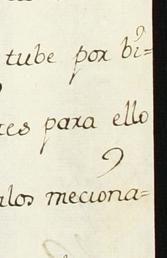 tube por bi=
tes para ello
los meciona=